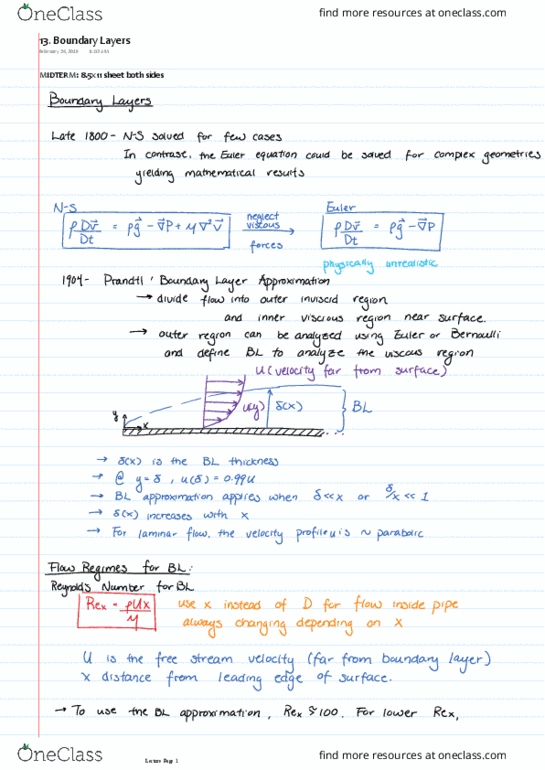 OneClass
find more resources at oneclass.com
13. Boundary Layers
MIDTERM: 8.5x11 sheet both sides
Boundary Layers
Late 1800 - N-S solved for few cases
In contrast, the Euler equation could be solved for complex geometries
yielding mathematical results
N-S
ρ Dv⃗/Dt = ρg⃗ - ∇⃗P + μ∇⃗²v⃗
neglect
viscous
forces
Euler
ρ Dv⃗/Dt = ρg⃗ - ∇⃗P
physically unrealistic
1904 - Prandtl, Boundary Layer Approximation
→ divide flow into outer inviscid region
and inner viscious region near surface.
→ outer region can be analyzed using Euler or Bernoulli
and define BL to analyze the viscous region
U (velocity far from surface)
y
x
u(y)
δ(x)
BL
→ δ(x) is the BL thickness
→ @ y=δ, u(δ) = 0.99U
→ BL approximation applies when δ<<x or δ/x << 1
→ δ(x) increases with x
→ For laminar flow, the velocity profile u is ~ parabolic
Flow Regimes for BL:
Reynolds Number for BL
Rex = ρUx/μ
use x instead of D for flow inside pipe
always changing depending on x
U is the free stream velocity (far from boundary layer)
x distance from leading edge of surface.
→ To use the BL approximation, Rex ≳ 100. For lower Rex,
Lecture Page 1
OneClass
find more resources at oneclass.com